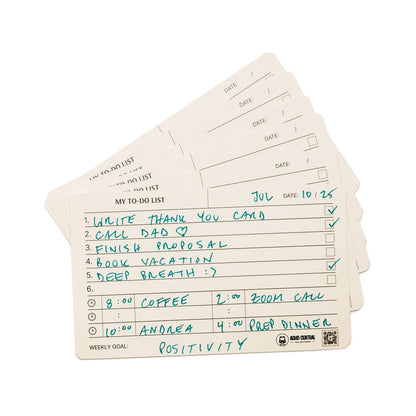 DATE: /
DATE: /
DATE: /
DATE: /
DATE: /
MY TO-DO LIST
MY TO-DO LIST
MY TO-DO LIST
MY TO-DO LIST
MY TO-DO LIST JUL DATE: 10, 25
1. WRITE THANK YOU CARD ✓
2. CALL DAD ♡ ✓
3. FINISH PROPOSAL
4. BOOK VACATION
5. DEEP BREATH :) ✓
6.
8:00 COFFEE 2:00 ZOOM CALL
: :
10:00 ANDREA 4:00 PREP DINNER
WEEKLY GOAL: POSITIVITY